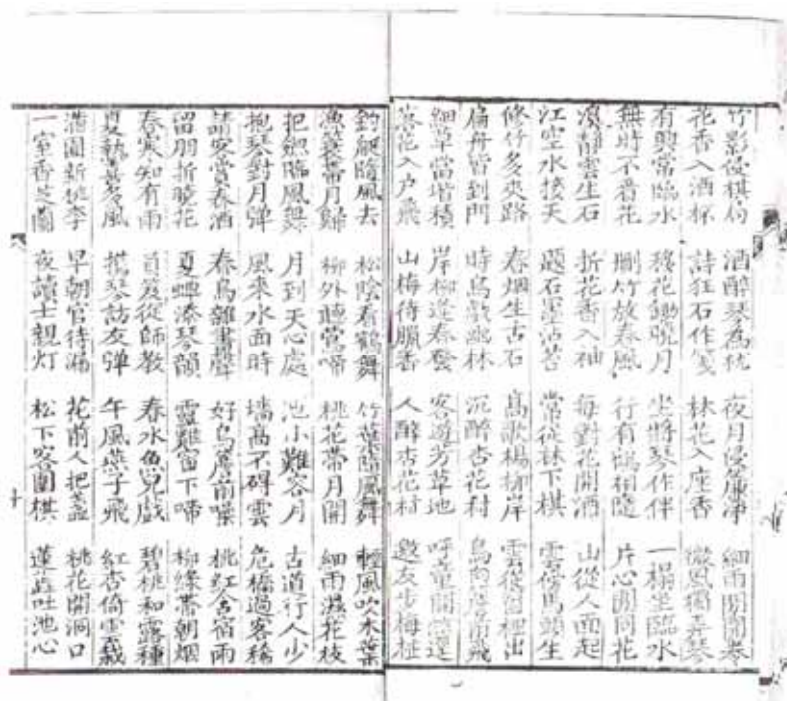 竹影侵棋局 酒醉琴為枕 夜月侵簾净 細雨閑開卷
花香入酒杯 詩狂石作箋 林花入座香 微風獨弄琴
有興常臨水 移花鋤曉月 坐將琴作伴 一榻坐臨水
無時不看花 删竹放春風 行有鶴相隨 片心閑同花
静雲生石 折花香入袖 每對花開酒 山從人面起
江空水接天 題石墨沾苔 常從林下棋 雲傍馬頭生
修竹多夾路 春烟生古石 鳥歌楊柳岸 雲從窗裡出
扁舟皆到門 時鳥戲跳林 沉醉杏花村 鳥向簷前飛
細草當堦積 岸柳逢春發 客遊芳草地 呼童開
落花入户飛 山梅待臘香 人醉杏花村 邀友步梅
釣艇隨風去 松陰看鶴舞 竹葉隨風舞 輕風吹木葉
漁蓑帶月歸 柳外聽鶯啼 桃花帶月開 細雨濕花枝
把劍臨風舞 月到天心處 池小難容月 古道行人少
抱琴對月弹 風來水面時 墻高不碍雲 危橋過客稀
請客賞春酒 春鳥雜書聲 好鳥簷前噪 桃紅含宿雨
留朋折曉花 夏蟬添琴韻 靈雞窗下啼 柳緑帶朝烟
春寒知有雨 負笈從師教 春水魚兒戲 碧桃和露種
夏熱喜多風 携琴訪友弹 午風燕子飛 紅杏倚雲栽
滿園新桃李 早朝官待漏 花前人把盞 桃花開洞口
一室香芝蘭 夜讀士親灯 松下客圍棋 蓮蕊吐池心